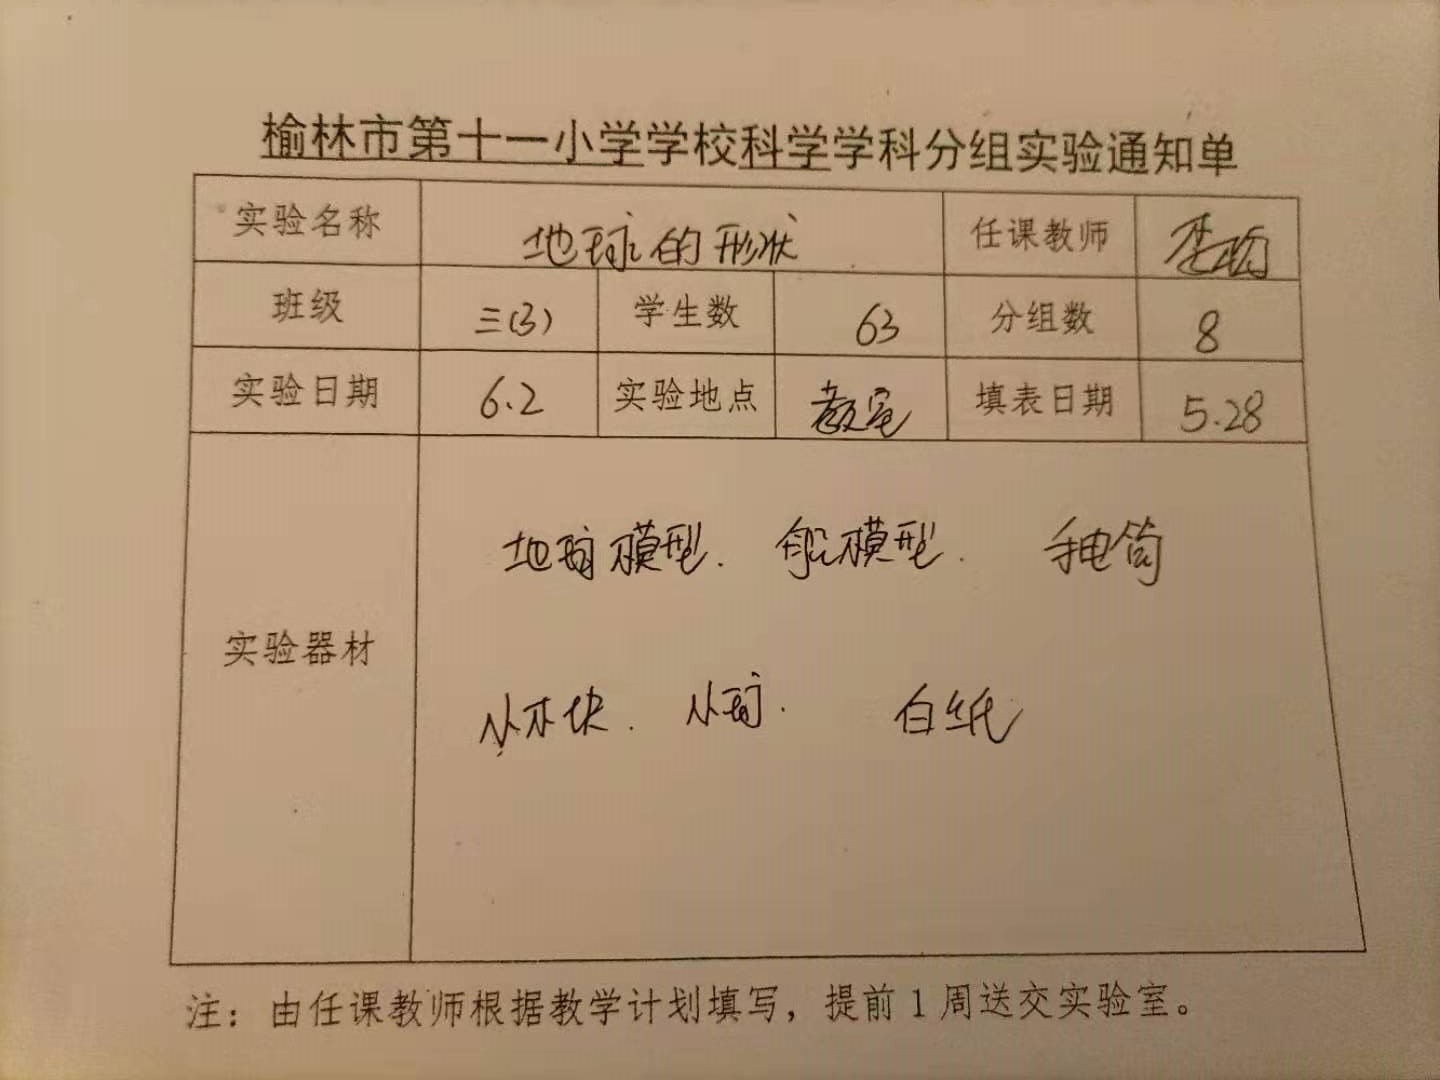 榆林市第十一小学学校科学学科分组实验通知单
实验名称 地球的形状 任课教师
班级 三(3) 学生数 63 分组数 8
实验日期 6.2 实验地点 教室 填表日期 5.28
实验器材
地球模型. 船模型. 手电筒
小木块. 小球. 白纸
注：由任课教师根据教学计划填写，提前1周送交实验室。